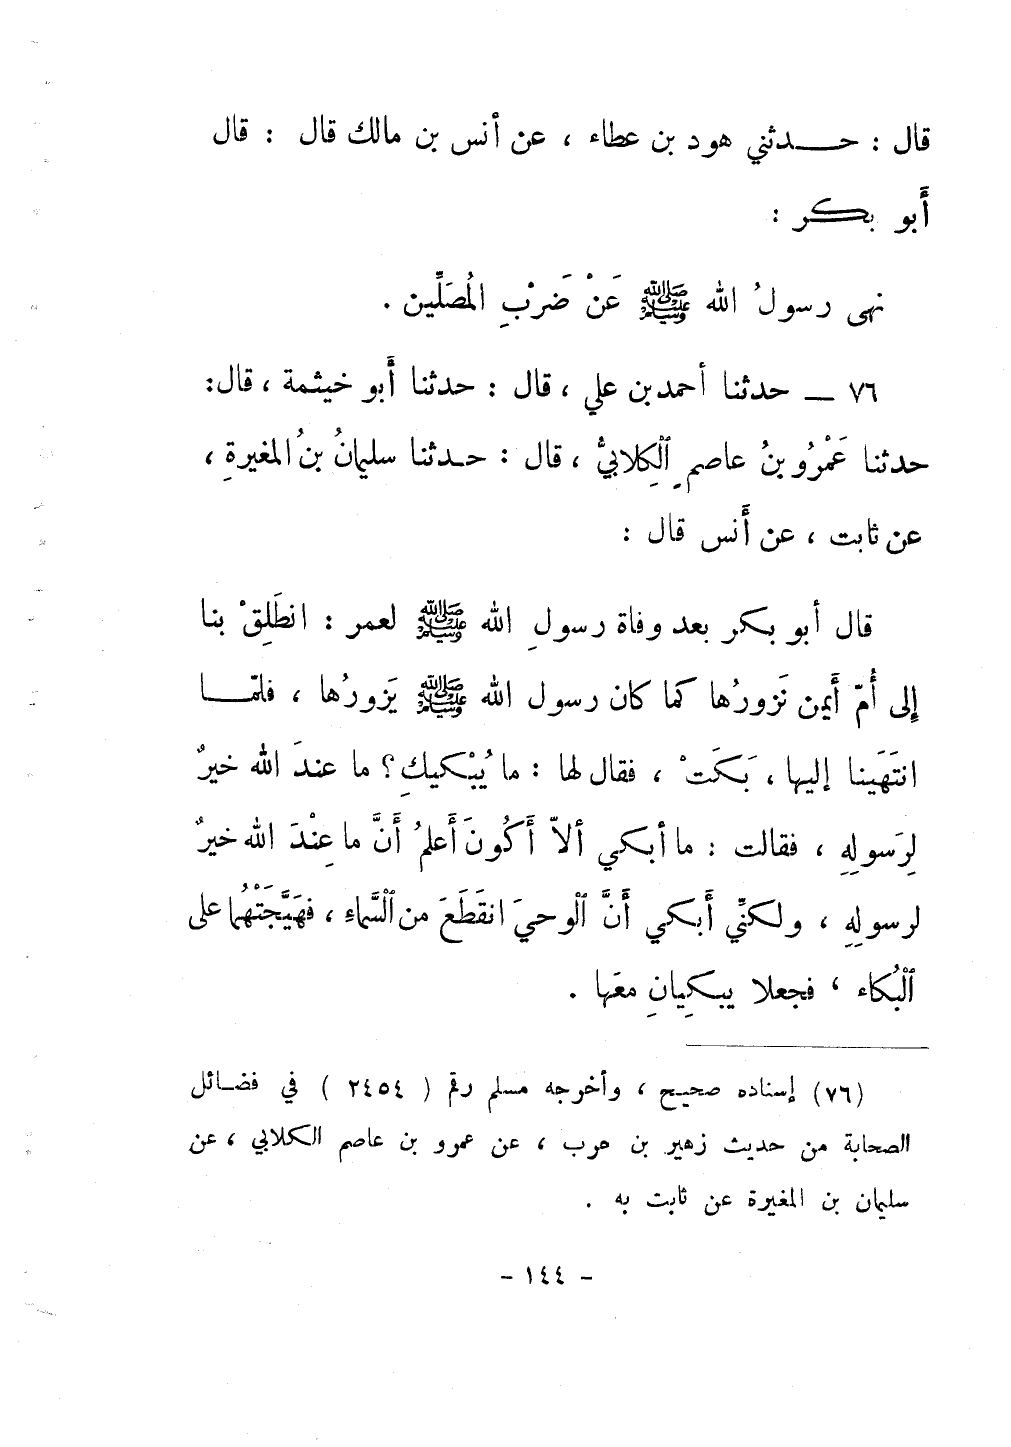 قال : حـــدثني هود بن عطاء ، عن أنس بن مالك قال : قال
أَبو بكر :
نهى رسولُ الله ﷺ عَنْ ضَرْبِ المُصَلِّين .
٧٦ ــ حدثنا أحمد بن علي ، قال : حدثنا أَبو خيثمة ، قال:
حدثنا عَمْرُو بنُ عاصمٍ ٱلْكِلابيُّ ، قال : حـدثنا سليمانُ بنُ المغيرةِ ،
عن ثابت ، عن أَنس قال :
قال أبو بكر بعد وفاة رسولِ الله ﷺ لعمر : انطَلِقْ بنا
إلى أُمّ أَيمن نَزورُها كما كان رسول الله ﷺ يَزورُها ، فلمّــا
انتَهَينا إليها ، بَكَتْ ، فقال لها : ما يُبْكيكِ؟ ما عندَ الله خيرٌ
لِرَسولِهِ ، فقالت : ما أبكي ألاّ أَكُونَ أَعلمُ أَنَّ ما عِنْدَ الله خيرٌ
لرسولِهِ ، ولكنِّي أَبكي أَنَّ ٱلْوحيَ انقَطَعَ من ٱلسَّماءِ ، فهَيَّجَتْهُما على
ٱلْبُكاء ، فجعلا يبكِيانِ معَها .
(٧٦) إسناده صحيح ، وأخرجه مسلم رقم ( ٢٤٥٤ ) في فضائل
الصحابة من حديث زهير بن حرب ، عن عمرو بن عاصم الكلابي ، عن
سليمان بن المغيرة عن ثابت به .
- ١٤٤ -